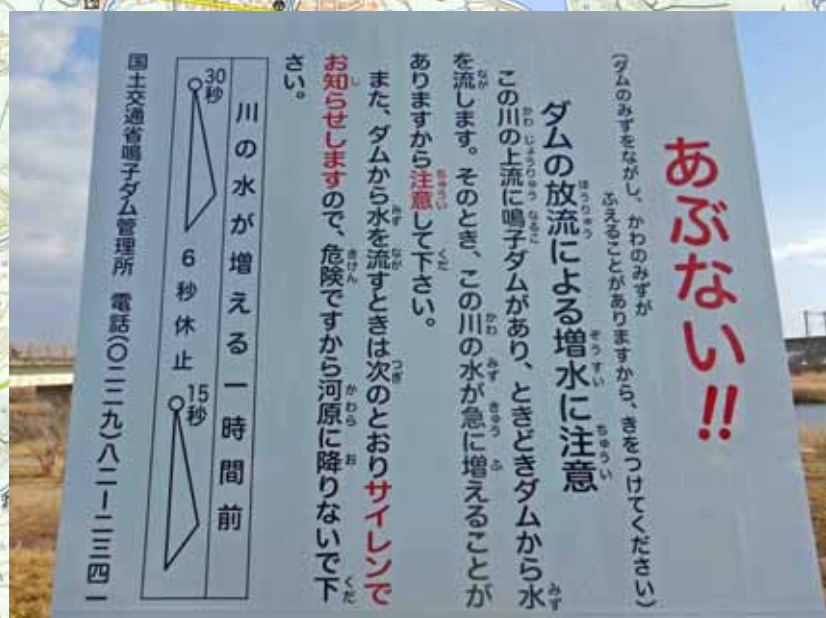 あぶない!!
(ダムのみずをながし、かわのみずが
ふえることがありますから、きをつけてください)
ダムの放流による増水に注意
この川の上流に鳴子ダムがあり、ときどきダムから水
を流します。そのとき、この川の水が急に増えることが
ありますから注意して下さい。
また、ダムから水を流すときは次のとおりサイレンで
お知らせしますので、危険ですから河原に降りないで下
さい。
川の水が増える一時間前
30秒 6秒休止 15秒
国土交通省鳴子ダム管理所 電話(〇二二九)八二ー二三四一